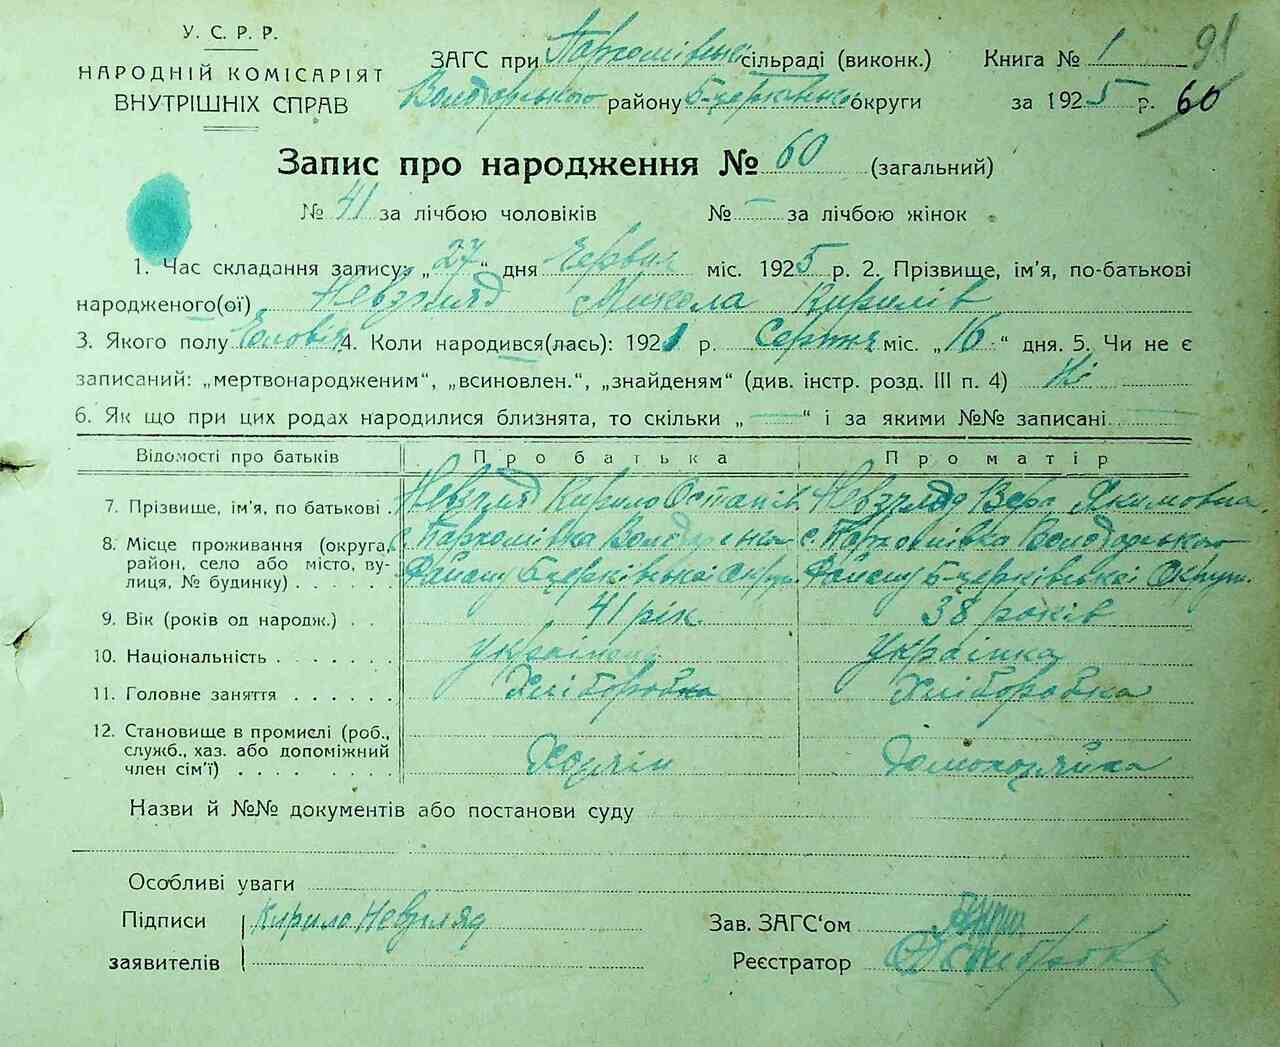 У. С. Р. Р.
НАРОДНІЙ КОМІСАРІЯТ
ВНУТРІШНІХ СПРАВ
ЗАГС при Пархомівській сільраді (виконк.) Книга № 1 91
Володарського району Б-церківської округи за 1925 р. 60
Запис про народження № 60 (загальний)
№ 41 за лічбою чоловіків № — за лічбою жінок
1. Час складання запису: „27“ дня Червня міс. 1925 р. 2. Прізвище, ім'я, по-батькові
народженого(ої) Невзгляд Микола Кирилів
3. Якого полу Чоловік 4. Коли народився(лась): 1921 р. Серпня міс. „16“ дня. 5. Чи не є
записаний: „мертвонародженим“, „всиновлен.“, „знайденям“ (див. інстр. розд. III п. 4) Ні
6. Як що при цих родах народилися близнята, то скільки „—“ і за якими №№ записані —
Відомості про батьків Про батька Про матір
7. Прізвище, ім'я, по батькові . Невзгляд Кирило Остапів Невзгляд Вера Якимовна
8. Місце проживання (округа, с. Пархомівка с. Пархомівка Володарського
район, село або місто, ву- Району Б-церківської Округ. Району Б-церківської Округ.
лиця, № будинку) . . . . .
9. Вік (років од народж.) . 41 рік 38 років
10. Національність . . . . . . . українець Українка
11. Головне заняття . . . . . . Хліборобка Хліборобка
12. Становище в промислі (роб.,
служб., хаз. або допоміжний Хазяїн Домохазяйка
член сім'ї) . . . . . . . .
Назви й №№ документів або постанови суду
Особливі уваги
Підписи Кирило Невзгляд Зав. ЗАГС‘ом
заявителів Реєстратор